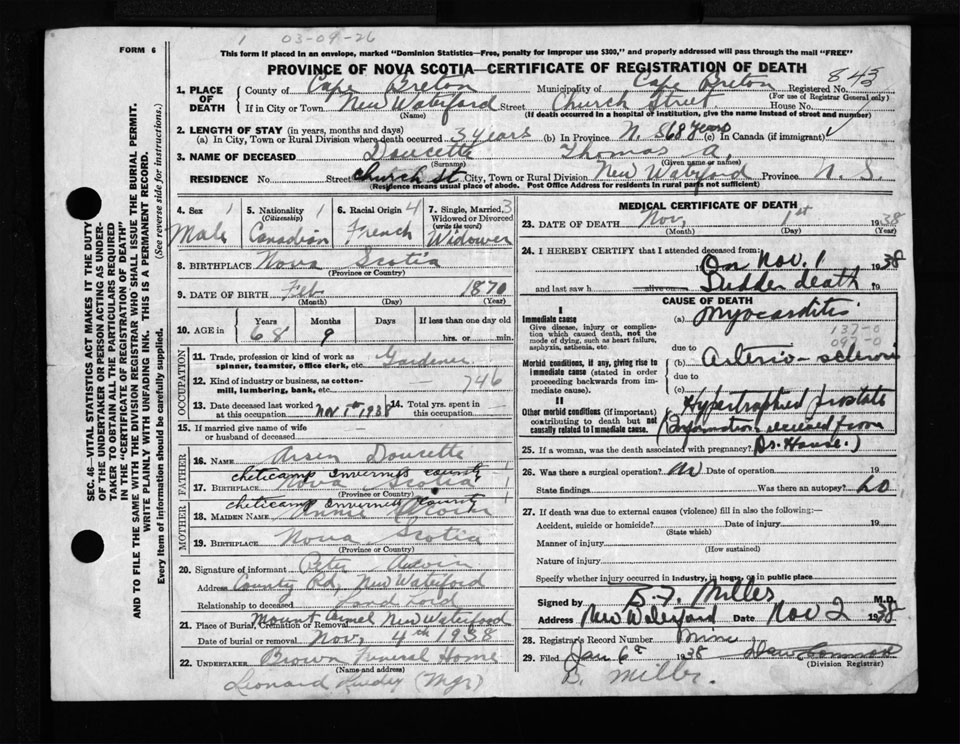 1 03-09-26
FORM 6
This form if placed in an envelope, marked "Dominion Statistics—Free, penalty for improper use $300," and properly addressed will pass through the mail "FREE"
PROVINCE OF NOVA SCOTIA—CERTIFICATE OF REGISTRATION OF DEATH
843
1. PLACE OF DEATH County of Cape Breton Municipality of Cape Breton Registered No.
(For use of Registrar General only)
If in City or Town New Waterford Street Church Street House No.
(Name) (If death occurred in a hospital or institution, give its name instead of street and number)
2. LENGTH OF STAY (in years, months and days)
(a) In City, Town or Rural Division where death occurred 3 years (b) In Province N. S 68 years (c) In Canada (if immigrant)
3. NAME OF DECEASED Doucette Thomas A.
(Surname) (Given name or names)
RESIDENCE No. Street Church St City, Town or Rural Division New Waterford Province N. S.
(Residence means usual place of abode. Post Office Address for residents in rural parts not sufficient)
4. Sex 1 5. Nationality 1 (Citizenship) 6. Racial Origin 4 7. Single, Married, 3 Widowed or Divorced (write the word)
Male Canadian French Widower
8. BIRTHPLACE Nova Scotia
(Province or Country)
9. DATE OF BIRTH Feb 1870
(Month) (Day) (Year)
10. AGE in Years Months Days If less than one day old
68 9 hrs. or min.
OCCUPATION
11. Trade, profession or kind of work as spinner, teamster, office clerk, etc. Gardener
12. Kind of industry or business, as cotton-mill, lumbering, bank, etc. 746
13. Date deceased last worked at this occupation Nov 1st 1938 14. Total yrs. spent in this occupation
15. If married give name of wife or husband of deceased
FATHER
16. Name Arsen Doucette
cheticamp Inverness county
17. Birthplace Nova Scotia
(Province or Country)
MOTHER
cheticamp Inverness County
18. Maiden Name Annie
19. Birthplace Nova Scotia
(Province or Country)
20. Signature of informant Peter
Address County Rd, New Waterford
Relationship to deceased Land Lord
21. Place of Burial, Cremation or Removal Mount Carmel New Waterford
Date of burial or removal Nov, 4th 1938
22. UNDERTAKER Brown Funeral Home
(Name and address)
Leonard (Mgr)
MEDICAL CERTIFICATE OF DEATH
23. DATE OF DEATH Nov, 1st 1938
(Month) (Day) (Year)
24. I HEREBY CERTIFY that I attended deceased from:
19 On Nov. 1 1938
and last saw h alive on Sudden death 19
CAUSE OF DEATH
I
Immediate cause (a) Myocarditis
Give disease, injury or complication which caused death, not the mode of dying, such as heart failure, asphyxia, asthenia, etc.
137-0
097-0
due to
Morbid conditions, if any, giving rise to immediate cause (stated in order proceeding backwards from immediate cause).
(b) Arterio-sclerosis
due to
(c)
II
Other morbid conditions (if important) contributing to death but not causally related to immediate cause.
Hypertrophied prostate
(Information received from
25. If a woman, was the death associated with pregnancy? Dr. House.)
26. Was there a surgical operation? no Date of operation 19
State findings Was there an autopsy?
27. If death was due to external causes (violence) fill in also the following:—
Accident, suicide or homicide? Date of injury 19
(State which)
Manner of injury
(How sustained)
Nature of injury
Specify whether injury occurred in industry, in home, or in public place
Signed by E. F. Miller M.D.
Address New Waterford Date Nov 2 1938
28. Registrar's Record Number
29. Filed Jan 6th 1938
(Division Registrar)
B. Miller.
SEC. 46—VITAL STATISTICS ACT MAKES IT THE DUTY OF THE UNDERTAKER OR PERSON ACTING AS UNDERTAKER TO OBTAIN ALL THE PARTICULARS REQUIRED IN THE "CERTIFICATE OF REGISTRATION OF DEATH" AND TO FILE THE SAME WITH THE DIVISION REGISTRAR WHO SHALL ISSUE THE BURIAL PERMIT.
WRITE PLAINLY WITH UNFADING INK. THIS IS A PERMANENT RECORD.
Every item of information should be carefully supplied. (See reverse side for instructions.)